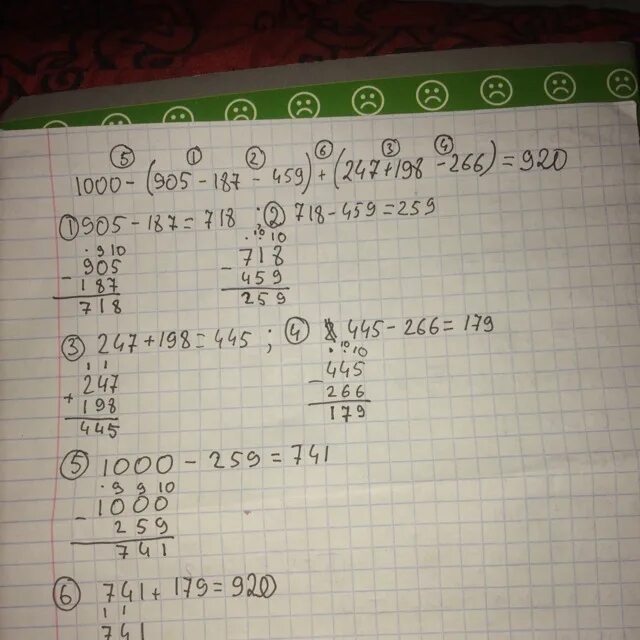 ⑤ ① ② ⑥ ③ ④
1000 - (905 - 187 - 459) + (247 + 198 - 266) = 920
① 905 - 187 = 718 ; ② 718 - 459 = 259
. 9 10 . 10 10
905 718
- 187 - 459
718 259
③ 247 + 198 = 445 ; ④ 445 - 266 = 179
1 1 . 10 10
247 445
+ 198 - 266
445 179
⑤ 1000 - 259 = 741
. 9 9 10
1000
- 259
741
⑥ 741 + 179 = 920
1 1
741